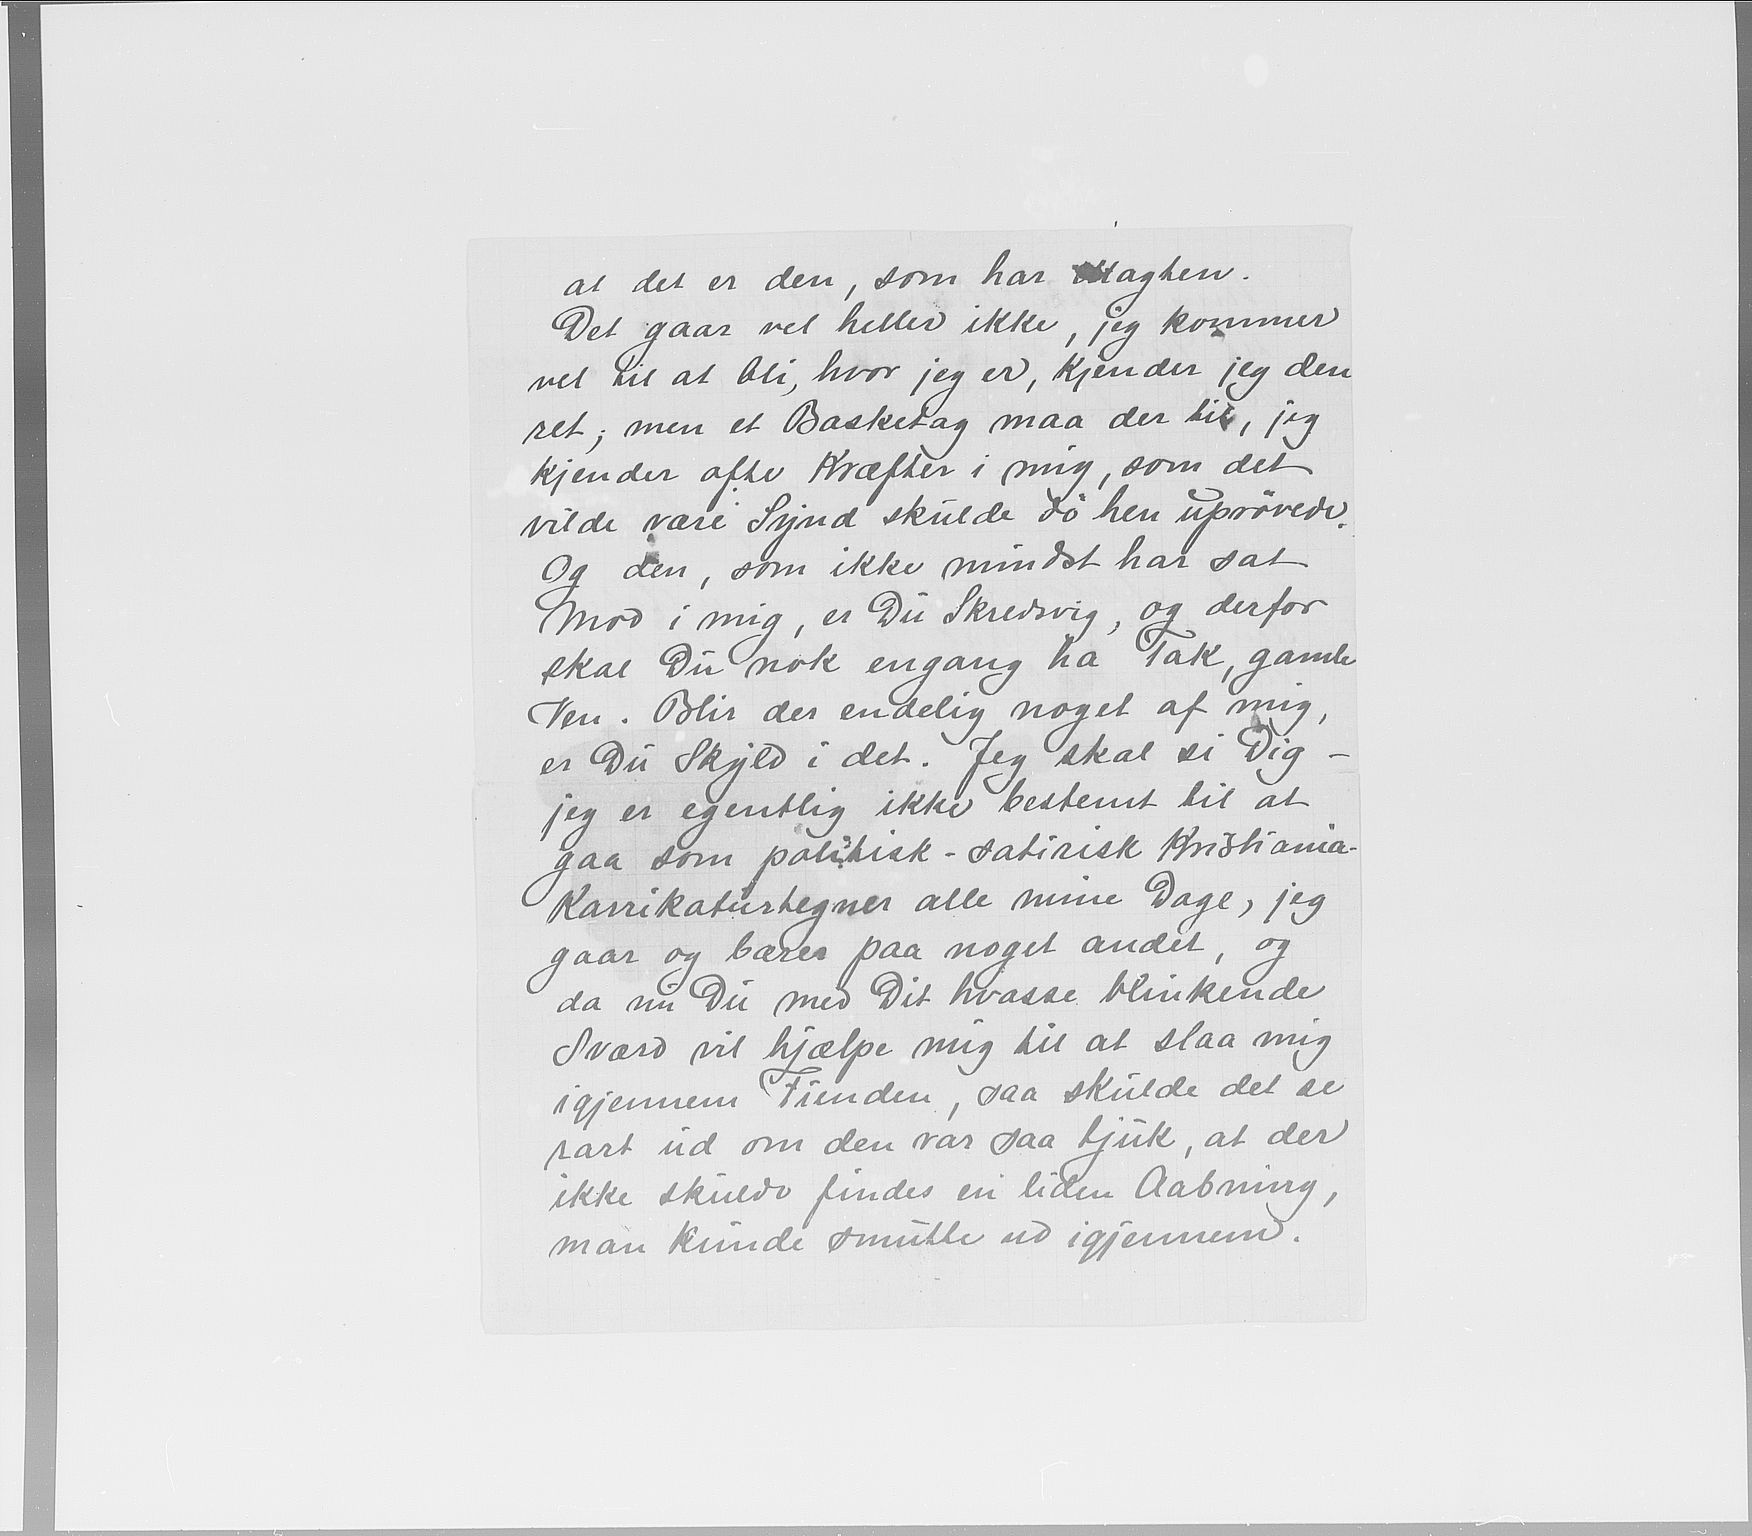 at det er den, som har Magten.
Det gaar vel heller ikke, jeg kommer
vel til at bli, hvor jeg er, kjender jeg den
ret; men et Basketag maa der til, jeg
kjender ofte Kræfter i mig, som det
vilde være Synd skulde dö hen uprövede.
Og den, som ikke mindst har sat
Mod i mig, er Du Skredsvig, og derfor
skal Du nok engang ha Tak, gamle
Ven. Blir der endelig noget af mig,
er Du Skyld i det. Jeg skal si Dig –
jeg er egentlig ikke bestemt til at
gaa som politisk-satirisk Kristiania-
Karrikaturtegner alle mine Dage, jeg
gaar og bærer paa noget andet, og
da nu Du med Dit hvasse blinkende
Sværd vil hjælpe mig til at slaa mig
igjennem Fienden, saa skulde det se
rart ud om den var saa tjuk, at der
ikke skulde findes en liden Aabning,
man kunde smutte ud igjennem.